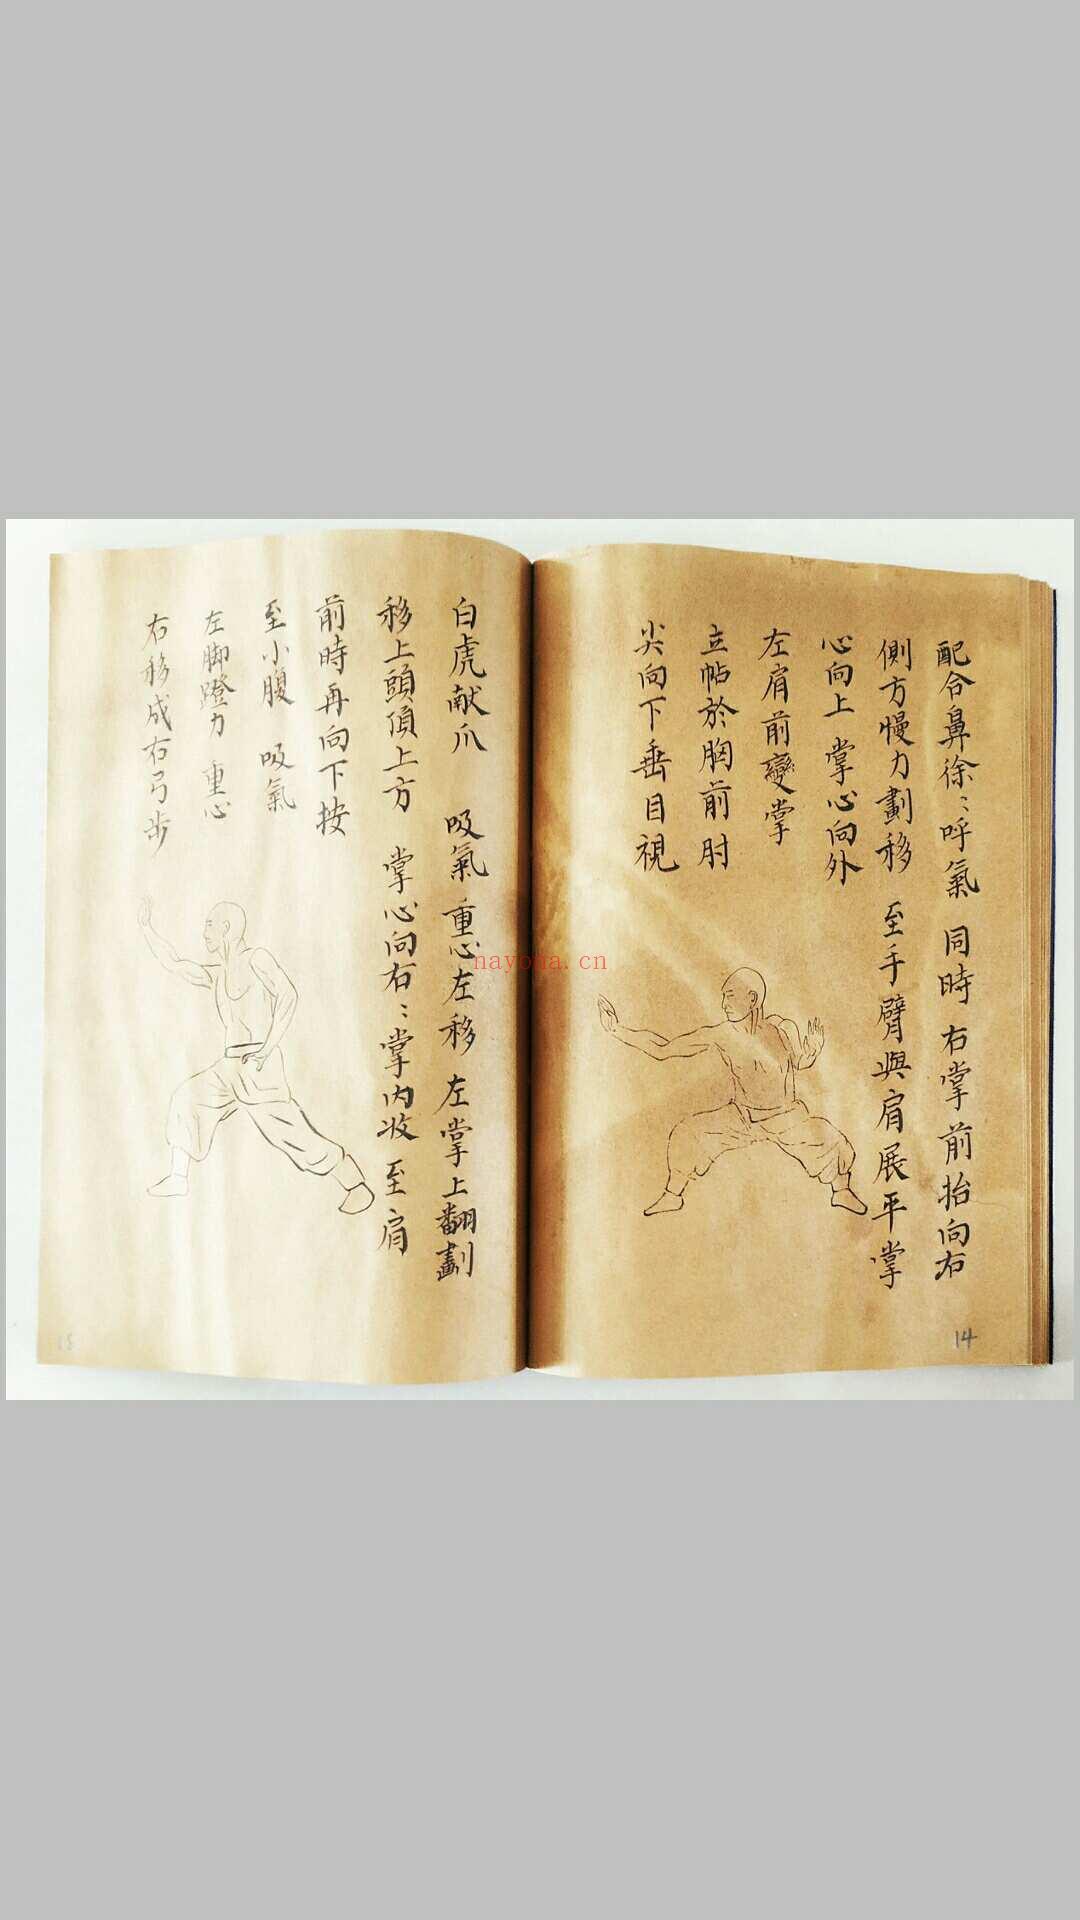 配合鼻徐〻呼氣 同時 右掌前抬向右
側方慢力劃移 至手臂與肩展平掌
心向上 掌心向外
左肩前變掌
立帖於胸前肘
尖向下垂目視
14
白虎献爪 吸氣重心左移 左掌上翻劃
移上頭頂上方 掌心向右〻掌内收至肩
前時再向下按
至小腹 吸氣
左脚蹬力 重心
右移成右弓步
15
nayona.cn